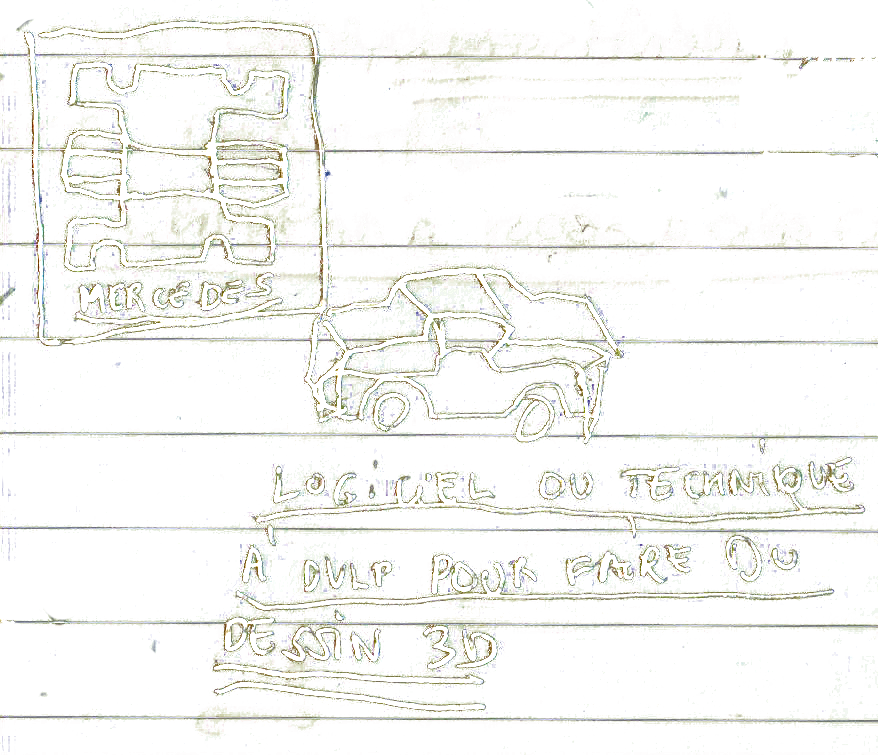 MERCEDES
LOGICIEL OU TECHNIQUE
A DVLP POUR FAIRE DU
DESSIN 3D